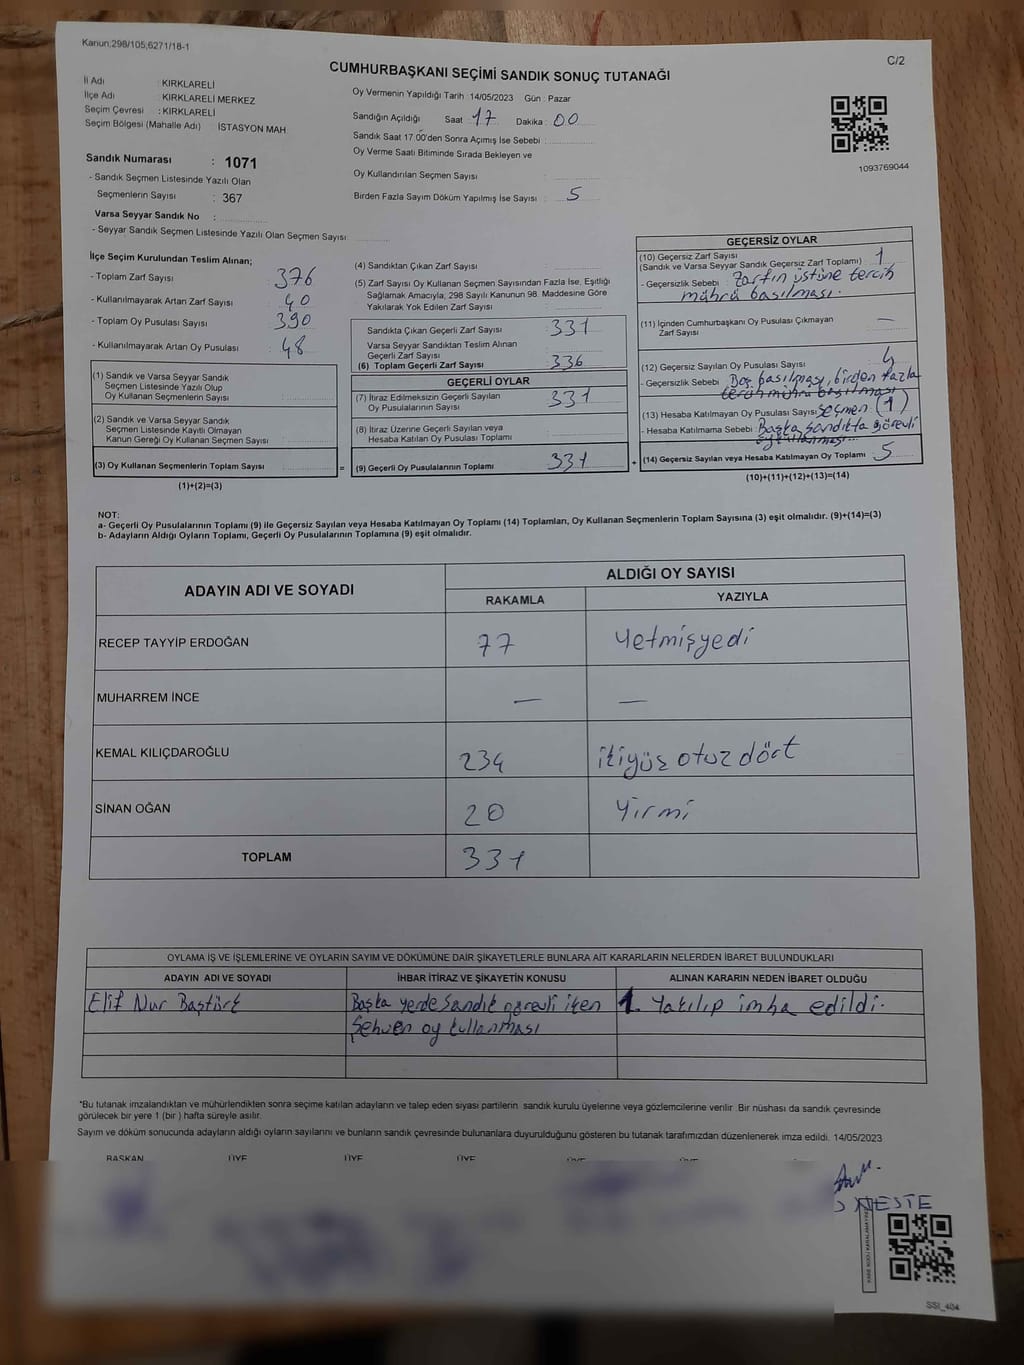 Kanun:298/105;6271/18-1
C/2
CUMHURBAŞKANI SEÇİMİ SANDIK SONUÇ TUTANAĞI
İl Adı : KIRKLARELİ
İlçe Adı : KIRKLARELİ MERKEZ
Seçim Çevresi : KIRKLARELİ
Seçim Bölgesi (Mahalle Adı) İSTASYON MAH.
Sandık Numarası : 1071
- Sandık Seçmen Listesinde Yazılı Olan
Seçmenlerin Sayısı : 367
Varsa Seyyar Sandık No :
- Seyyar Sandık Seçmen Listesinde Yazılı Olan Seçmen Sayısı:
Oy Vermenin Yapıldığı Tarih :14/05/2023 Gün : Pazar
Sandığın Açıldığı Saat : 17 Dakika : 00
Sandık Saat 17.00'den Sonra Açımış İse Sebebi :
Oy Verme Saati Bitiminde Sırada Bekleyen ve
Oy Kullandırılan Seçmen Sayısı :
Birden Fazla Sayım Döküm Yapılmış İse Sayısı : 5
1093769044
İlçe Seçim Kurulundan Teslim Alınan;
- Toplam Zarf Sayısı : 376
- Kullanılmayarak Artan Zarf Sayısı : 40
- Toplam Oy Pusulası Sayısı : 390
- Kullanılmayarak Artan Oy Pusulası : 48
(1) Sandık ve Varsa Seyyar Sandık
Seçmen Listesinde Yazılı Olup
Oy Kullanan Seçmenlerin Sayısı :
(2) Sandık ve Varsa Seyyar Sandık
Seçmen Listesinde Kayıtlı Olmayan
Kanun Gereği Oy Kullanan Seçmen Sayısı :
(3) Oy Kullanan Seçmenlerin Toplam Sayısı :
=
(1)+(2)=(3)
(4) Sandıktan Çıkan Zarf Sayısı :
(5) Zarf Sayısı Oy Kullanan Seçmen Sayısından Fazla İse, Eşitliği
Sağlamak Amacıyla; 298 Sayılı Kanunun 98. Maddesine Göre
Yakılarak Yok Edilen Zarf Sayısı :
Sandıkta Çıkan Geçerli Zarf Sayısı : 331
Varsa Seyyar Sandıktan Teslim Alınan
Geçerli Zarf Sayısı :
(6) Toplam Geçerli Zarf Sayısı : 336
GEÇERLİ OYLAR
(7) İtiraz Edilmeksizin Geçerli Sayılan
Oy Pusulalarının Sayısı : 331
(8) İtiraz Üzerine Geçerli Sayılan veya
Hesaba Katılan Oy Pusulası Toplamı :
(9) Geçerli Oy Pusulalarının Toplamı : 331
+
GEÇERSİZ OYLAR
(10) Geçersiz Zarf Sayısı : 1
(Sandık ve Varsa Seyyar Sandık Geçersiz Zarf Toplamı)
- Geçersizlik Sebebi : Zarfın üstüne tercih
mührü basılması.
(11) İçinden Cumhurbaşkanı Oy Pusulası Çıkmayan
Zarf Sayısı : —
(12) Geçersiz Sayılan Oy Pusulası Sayısı : 4
- Geçersizlik Sebebi : Boş basılması, birden fazla
mührü basılması
(13) Hesaba Katılmayan Oy Pusulası Sayısı : seçmen (1)
- Hesaba Katılmama Sebebi : Başka sandıkta görevli
(14) Geçersiz Sayılan veya Hesaba Katılmayan Oy Toplamı : 5
(10)+(11)+(12)+(13)=(14)
NOT:
a- Geçerli Oy Pusulalarının Toplamı (9) ile Geçersiz Sayılan veya Hesaba Katılmayan Oy Toplamı (14) Toplamları, Oy Kullanan Seçmenlerin Toplam Sayısına (3) eşit olmalıdır. (9)+(14)=(3)
b- Adayların Aldığı Oyların Toplamı, Geçerli Oy Pusulalarının Toplamına (9) eşit olmalıdır.
ADAYIN ADI VE SOYADI
ALDIĞI OY SAYISI
RAKAMLA YAZIYLA
RECEP TAYYİP ERDOĞAN 77 Yetmişyedi
MUHARREM İNCE — —
KEMAL KILIÇDAROĞLU 234 ikiyüz otuz dört
SİNAN OĞAN 20 Yirmi
TOPLAM 331
OYLAMA İŞ VE İŞLEMLERİNE VE OYLARIN SAYIM VE DÖKÜMÜNE DAİR ŞİKAYETLERLE BUNLARA AİT KARARLARIN NELERDEN İBARET BULUNDUKLARI
ADAYIN ADI VE SOYADI İHBAR İTİRAZ VE ŞİKAYETİN KONUSU ALINAN KARARIN NEDEN İBARET OLDUĞU
Elif Nur Baştürk Başka yerde sandık görevli iken 1. Yakılıp imha edildi.
Sehven oy kullanması
*Bu tutanak imzalandıktan ve mühürlendikten sonra seçime katılan adayların ve talep eden siyasi partilerin sandık kurulu üyelerine veya gözlemcilerine verilir. Bir nüshası da sandık çevresinde
görülecek bir yere 1 (bir ) hafta süreyle asılır.
Sayım ve döküm sonucunda adayların aldığı oyların sayılarını ve bunların sandık çevresinde bulunanlara duyurulduğunu gösteren bu tutanak tarafımızdan düzenlenerek imza edildi. 14/05/2023
BAŞKAN ÜYE ÜYE ÜYE ÜYE ÜYE
SSI_404